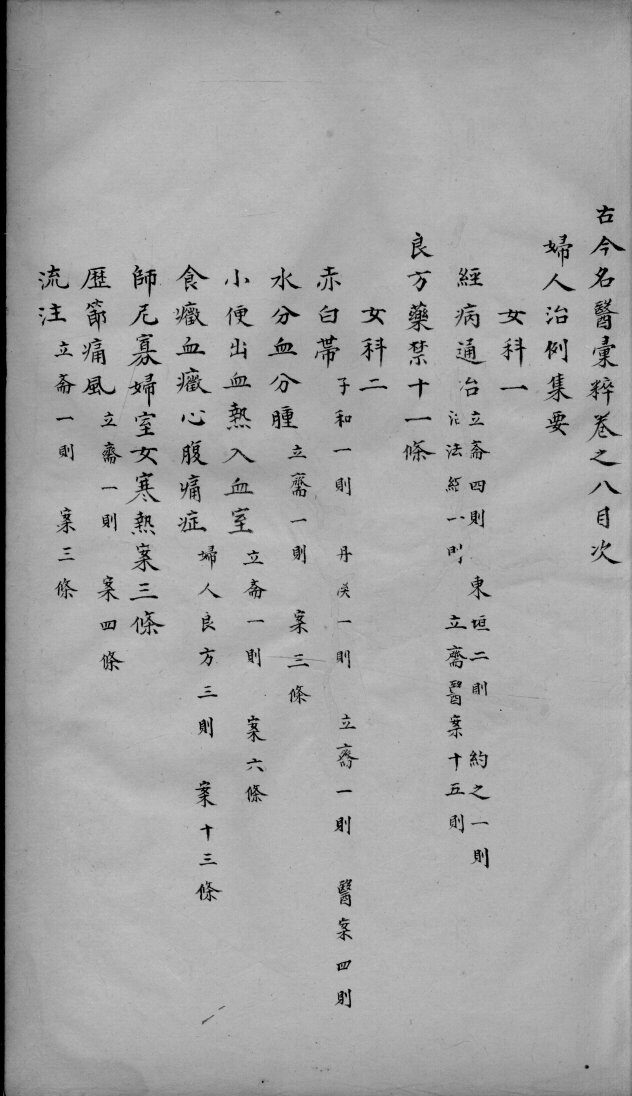 古今名醫彙粹卷之八目次
婦人治例集要
女科一
經病通治 立斎四則 東垣二則 約之一則
治法經一則 立齋醫案十五則
良方藥禁十一條
女科二
赤白帶 子和一則 丹溪一則 立齋一則 醫案四則
水分血分腫 立齋一則 案三條
小便出血熱入血室 立斎一則 案六條
食癥血癥心腹痛症 婦人良方三則 案十三條
師尼寡婦室女寒熱案三條
歷節痛風 立齋一則 案四條
流注 立斎一則 案三條